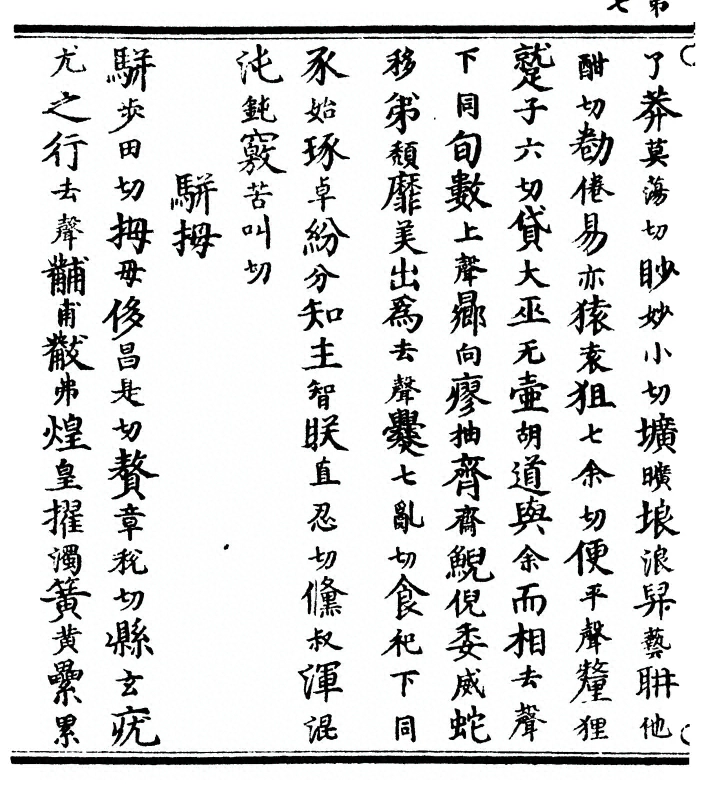 第七
了莽莫蕩切眇妙小切壙曠埌浪帠藝聃他
酣切勌倦易亦猿袁狙七余切便平聲氂狸
蹵子六切貸大巫无壷胡道與余而相去聲
下同旬數上聲鄉向瘳抽齊齋鯢倪委威蛇
移弟頽靡美出爲去聲爨七亂切食祀下同
豕始琢卓紛分知主智朕直忍切儵叔渾混
沌鈍竅苦叫切
駢拇
駢步田切拇母侈昌是切贅章稅切縣玄疣
尤之行去聲黼甫黻弗煌皇擢濁簧黄纍累